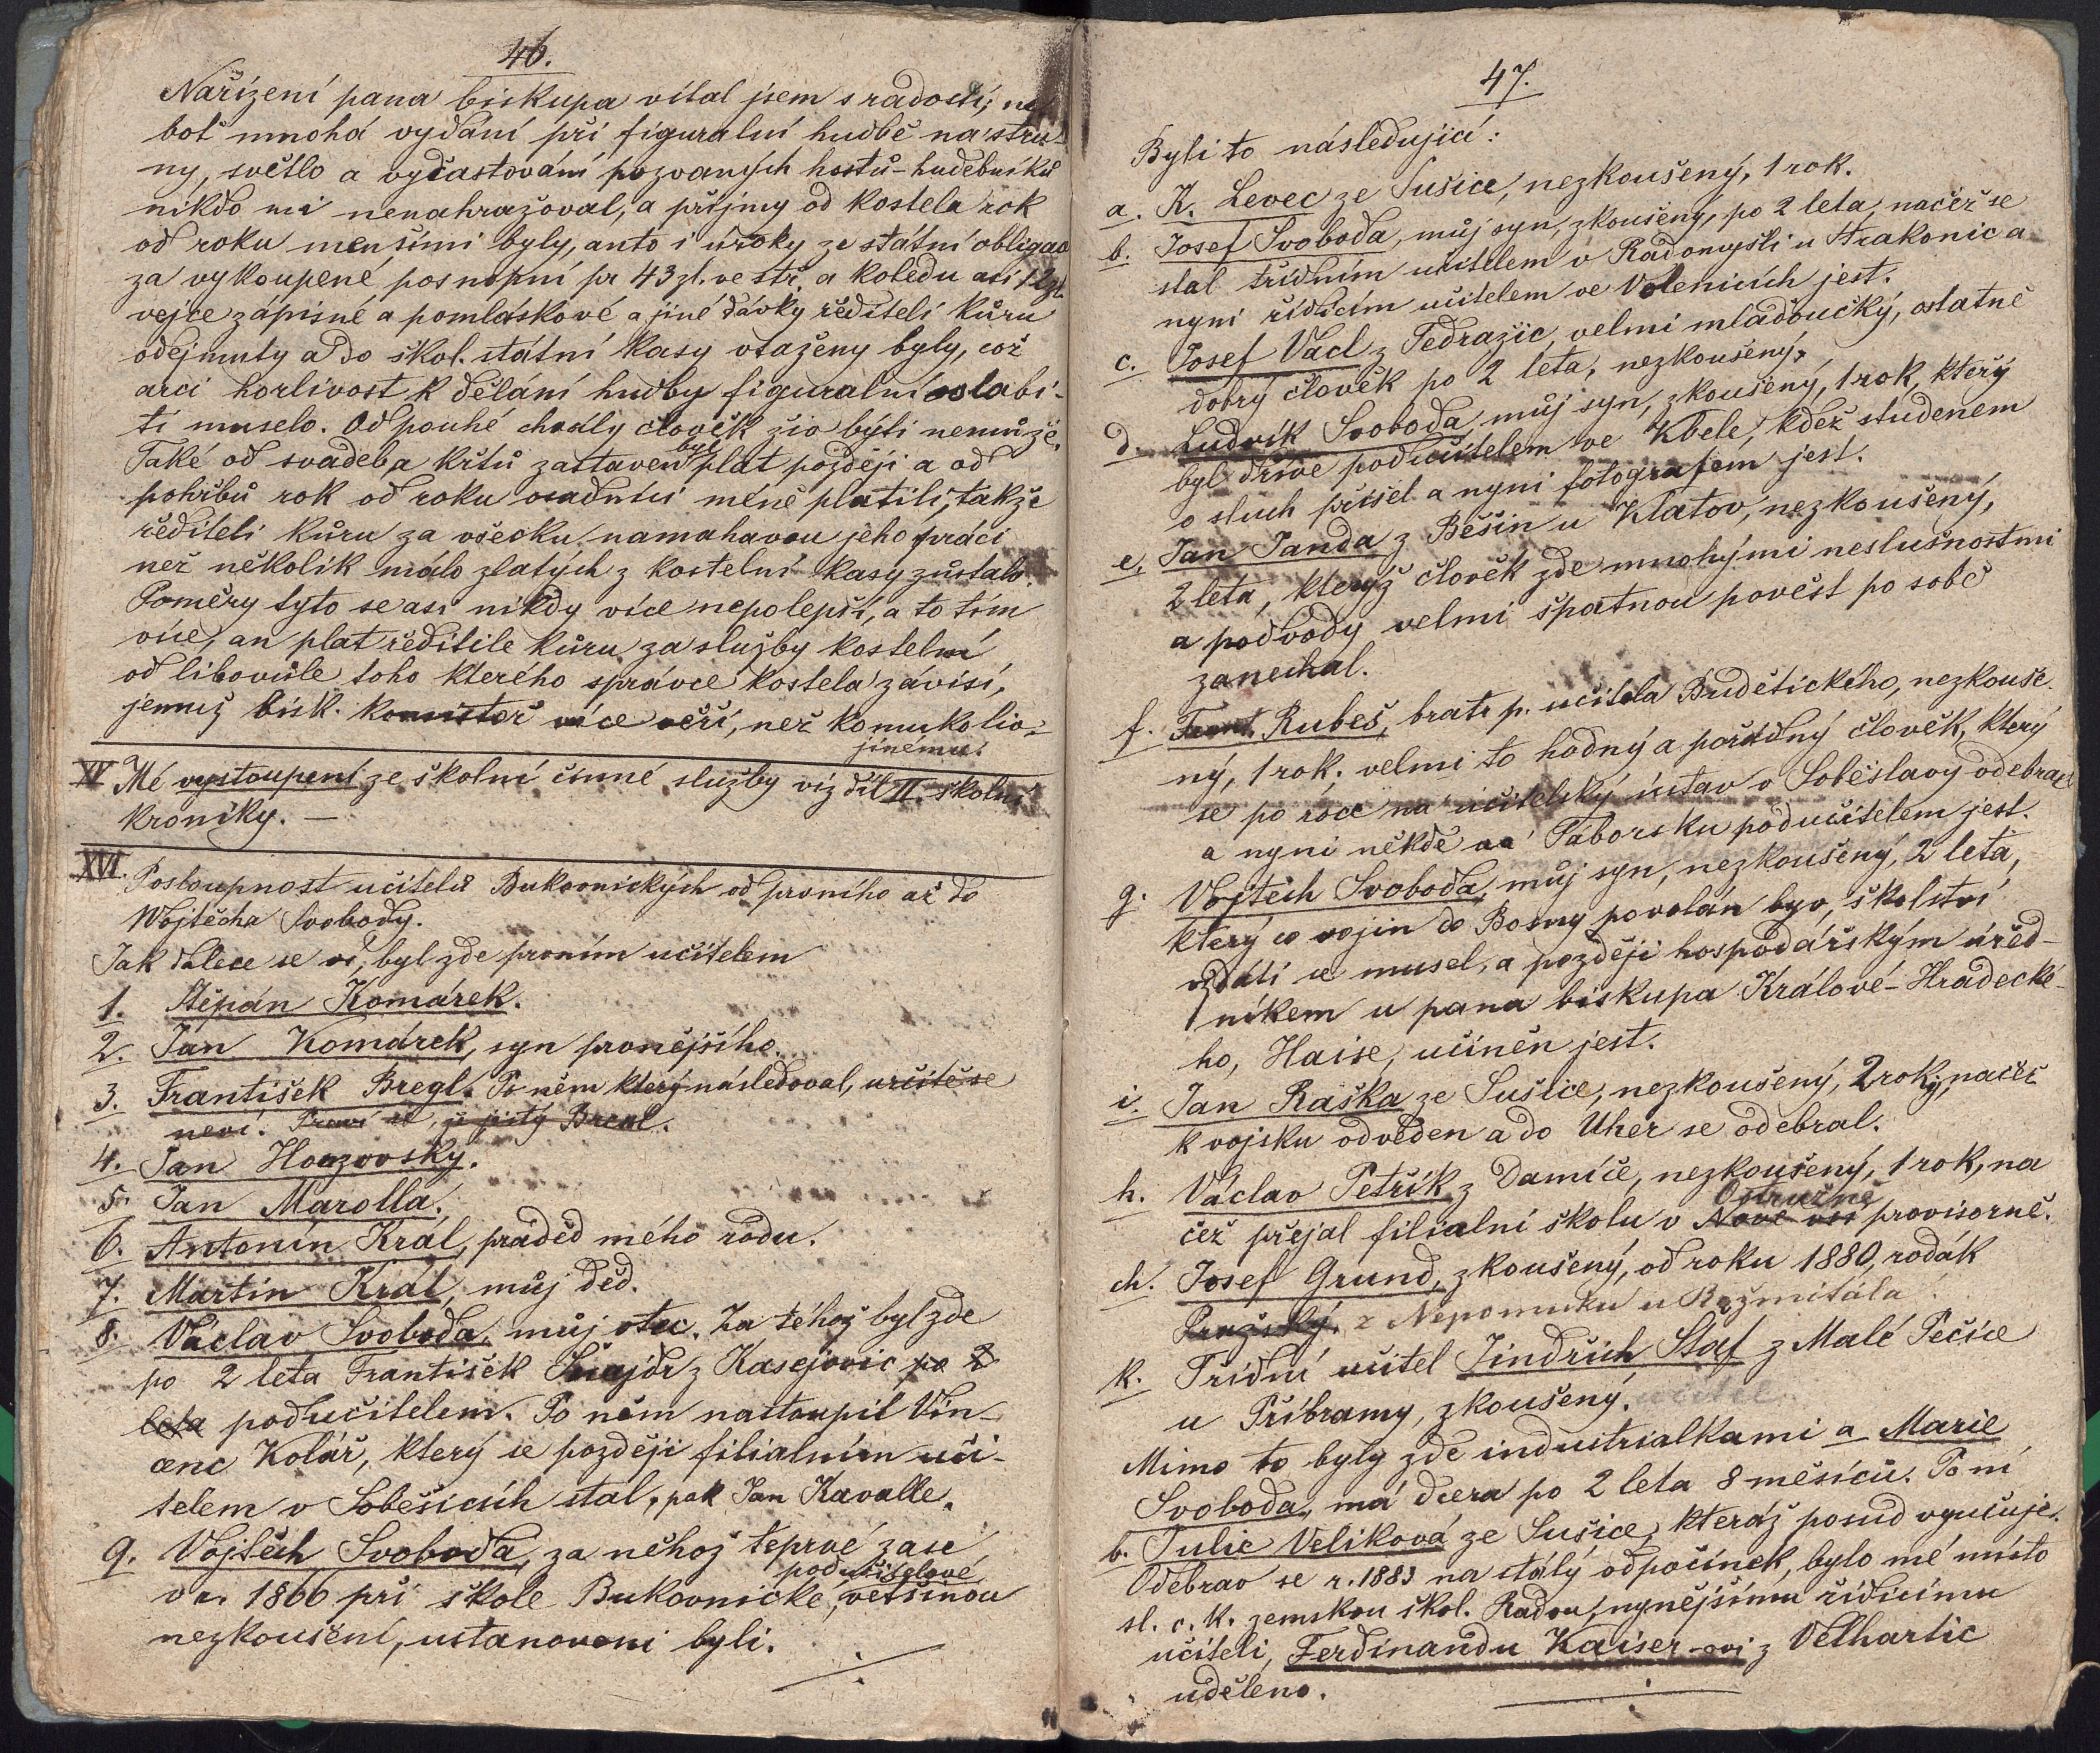 46.
Nařízení pana biskupa vítal jsem s radostí; ne-
boť mnohá vydání při figuralní hudbě na stru-
ny, světlo a vyčastování pozvaných hostů-hudebníků
nikdo mi nenahražoval, a příjmy od kostela rok
od roku menšími byly, anto i úroky ze státní obligace
za vykoupené posnopní pr 43 zl. ve stř. a koledu asi 12 zl.
vejce zápisné a pomláskové a jiné dávky řediteli kůru
odejmuty a do škol. státní kasy vtaženy byly, což
arci horlivost k dělání hudby figuralní slabi-
ti muselo. Od pouhé chvály člověk živ býti nemůže.
Také od svadeb a křtů zastaven byl plat později a od
pohřbů rok od roku osadníci méně platili, takže
řediteli kůru za všecku namahavou jeho práci
než několik málo zlatých z kostelní kasy zůstalo.
Poměry tyto se asi nikdy více nepolepší, a to tím
více, an plat ředitile kůru za služby kostelní
od libovůle toho kterého správce kostela závisí,
jemuž bisk. konsistoř více věří, než komukoliv
jinému.
XV Mé vystoupení ze školní činné služby viz díl II. školní
kroniky. —
XVI. Posloupnost učitelů Bukovnických od prvního až do
Wojtěcha Svobody.
Jak dalece se ví, byl zde prvním učitelem
1. Štěpán Komárek.
2. Jan Komárek, syn prvnějšího.
3. František Bregl. Po něm který následoval, určitě se
neví. Praví se, že jistý Bregl.
4. Jan Houzovský.
5. Jan Marolla.
6. Antonín Král, praděd mého rodu.
7. Martin Král, můj děd.
8. Václav Svoboda, můj otec. Za téhož byl zde
po 2 leta František Šnajdr z Kasejovic po 2
leta podučitelem. Po něm nastoupil Vin-
cenc Kolář, který se později filialním uči-
telem v Soběšicích stal, pak Jan Kavalle.
9. Vojtěch Svoboda, za něhož teprvé zase
v r. 1866 při škole Bukovnické, podučitelové většinou
nezkoušení, ustanoveni byli.
47.
Byli to následující:
a. K. Levec ze Sušice, nezkoušený, 1 rok.
b. Josef Svoboda, můj syn, zkoušený, po 2 leta, načež se
stal třídním učitelem v Radomyšli u Strakonic a
nyní řídícím učitelem ve Volenicích jest.
c. Josef Vacl z Tedražic, velmi mladoučký, ostatně
dobrý člověk po 2 leta, nezkoušený.
d. Ludvík Svoboda, můj syn, zkoušený, 1 rok, který
byl dříve podučitelem ve Kbele, kdež studenem
o sluch přišel a nyní fotografem jest.
e. Jan Janda z Běšin u Klatov, nezkoušený,
2 leta, kterýž člověk zde mnohými neslušnostmi
a podvody velmi špatnou pověst po sobě
zanechal.
f. Frant. Rubeš, bratr p. učitela Budětického, nezkouše-
ný, 1 rok; velmi to hodný a pořádný člověk, který
se po roce na učitelský ústav v Soběslavy odebral
a nyní někde na Táborsku podučitelem jest.
g. Vojtěch Svoboda, můj syn, nezkoušený, 2 leta,
který co vojín do Bosny povolán byv, školství
vzdáti se musel, a později hospodářským úřed-
níkem u pana biskupa Králové-Hradecké-
ho, Haise, učiněn jest.
i. Jan Raška ze Sušice, nezkoušený, 2 roky, načež
k vojsku odveden a do Uher se odebral.
h. Václav Petřík z Damíče, nezkoušený, 1 rok, na
čež přejal filialní školu v Nové vsi Ostružně provisorně.
ch. Josef Grund, zkoušený, od roku 1880, rodák
Pražský. z Nepomuku u Rožmitála.
k. Třídní učitel Jindřich Štaf z Malé Pečice
u Příbramy, zkoušený. učitel
Mimo to byly zde industrialkami a Marie
Svoboda, má dcera po 2 leta 8 měsíců. Po ní
b. Julie Velíková ze Sušice, kteráž posud vyučuje.
Odebrav se r. 1883 na stálý odpočinek, bylo mé místo
sl. c. k. zemskou škol. Radou, nynějšímu řídícímu
učiteli, Ferdinandu Kaiser-ovi z Velhartic
uděleno.